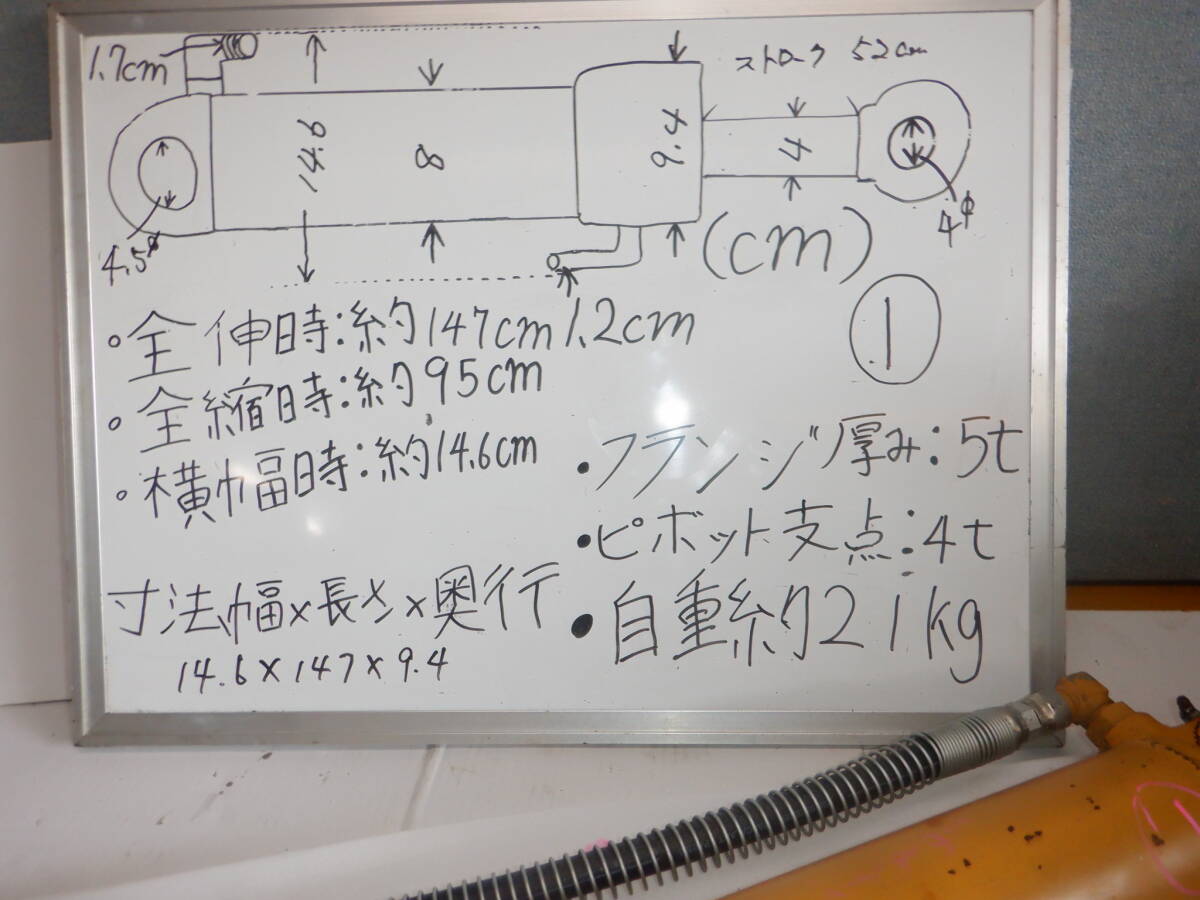 1.7cm
ストローク 52cm
14.6
8
9.4
4
4.5φ
4φ
(cm)
①
・全伸時:約147cm
1.2cm
・全縮時:約95cm
・横幅時:約14.6cm
・フランジ厚み:5t
・ピボット支点:4t
寸法幅×長さ×奥行
14.6×147×9.4
・自重約21kg